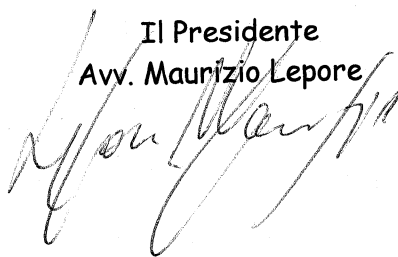 Il Presidente
Avv. Maurizio Lepore